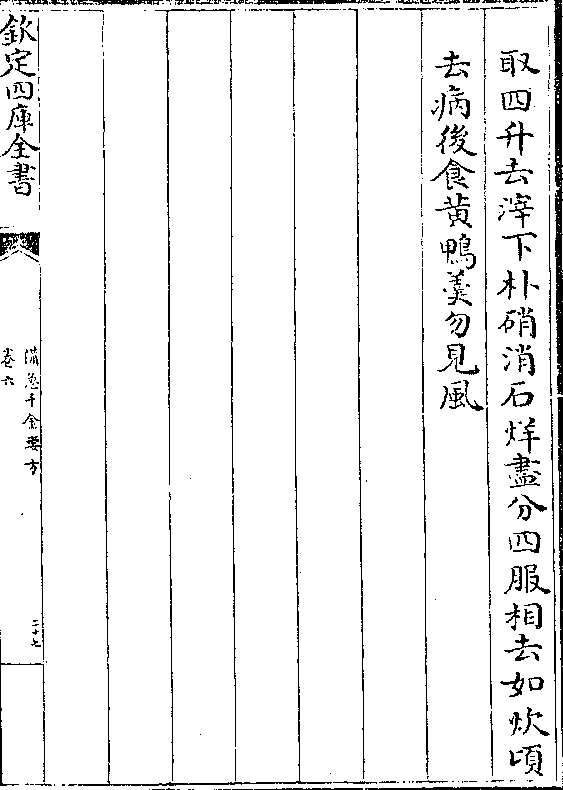 取四升去滓下朴硝消石烊盡分四服相去如炊頃
去病後食黄鴨羮勿見風
欽定四庫全書
備急千金要方
卷六
二十七